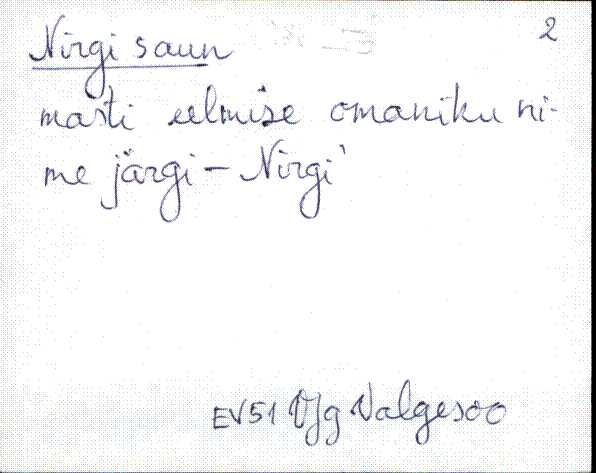 Nirgi saun 2
masti eelmise omaniku ni-
me järgi – Nirgi'
EV51 Vg Valgesoo